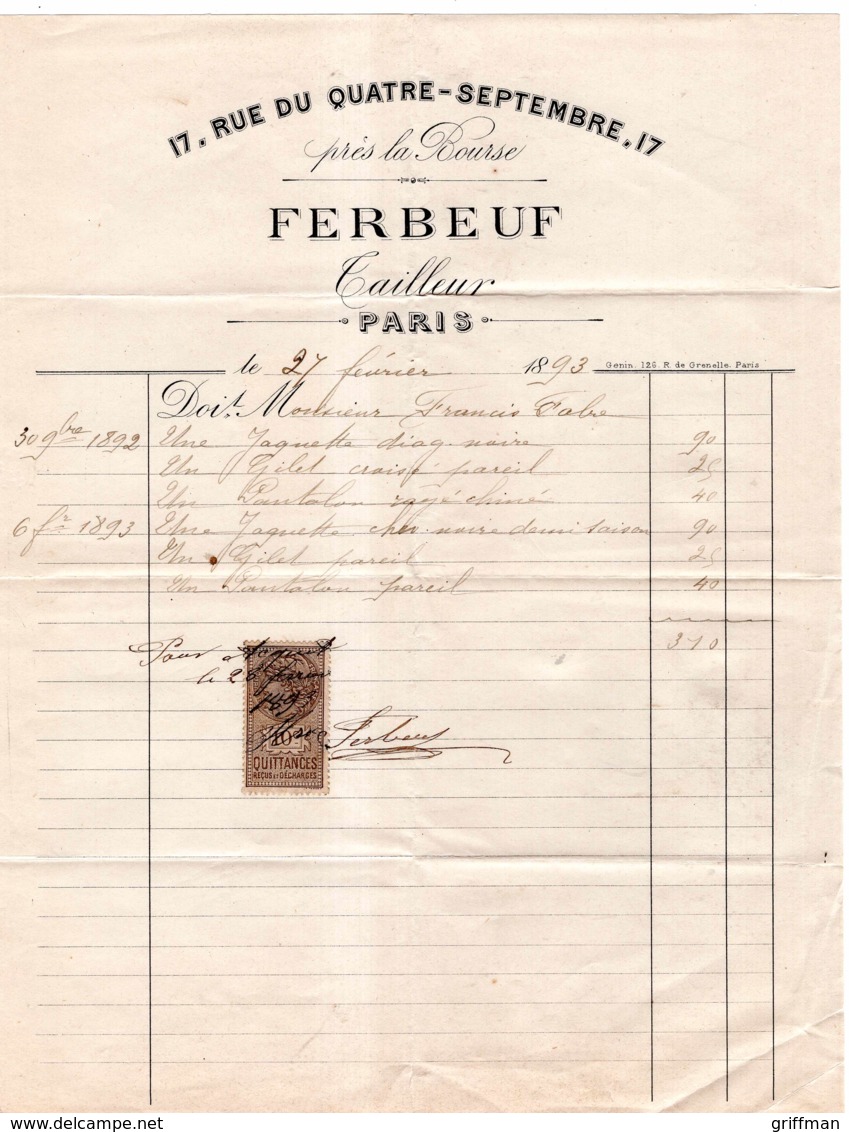 17, RUE DU QUATRE-SEPTEMBRE, 17
près la Bourse
FERBEUF
Tailleur
PARIS
le 27 février 1893 Genin. 126 R. de Grenelle. Paris
Doit Monsieur Francis Fabre
30 9bre 1892 Une Jaquette diag. noire 90
Un Gilet croisé pareil 25
Un Pantalon rayé chiné 40
6 fr 1893 Une Jaquette chev. noire demi saison 90
Un Gilet pareil 25
Un Pantalon pareil 40
310
Pour acquit
le 28 février
1893
Ferbeuf
10c
QUITTANCES
REÇUS ET DÉCHARGES
delcampe.net
griffman